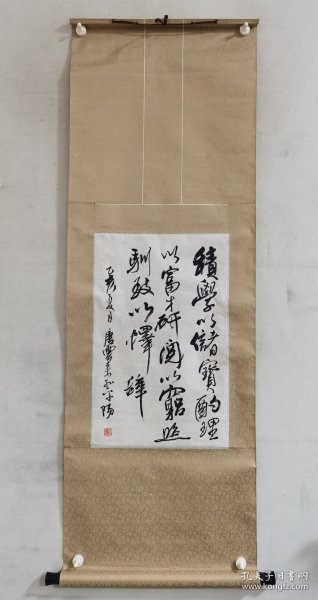 積學以儲寶酌理
以富才研閱以窮照
馴致以懌辭
乙亥夏月唐雲
孔夫子旧书网
kongfz.com